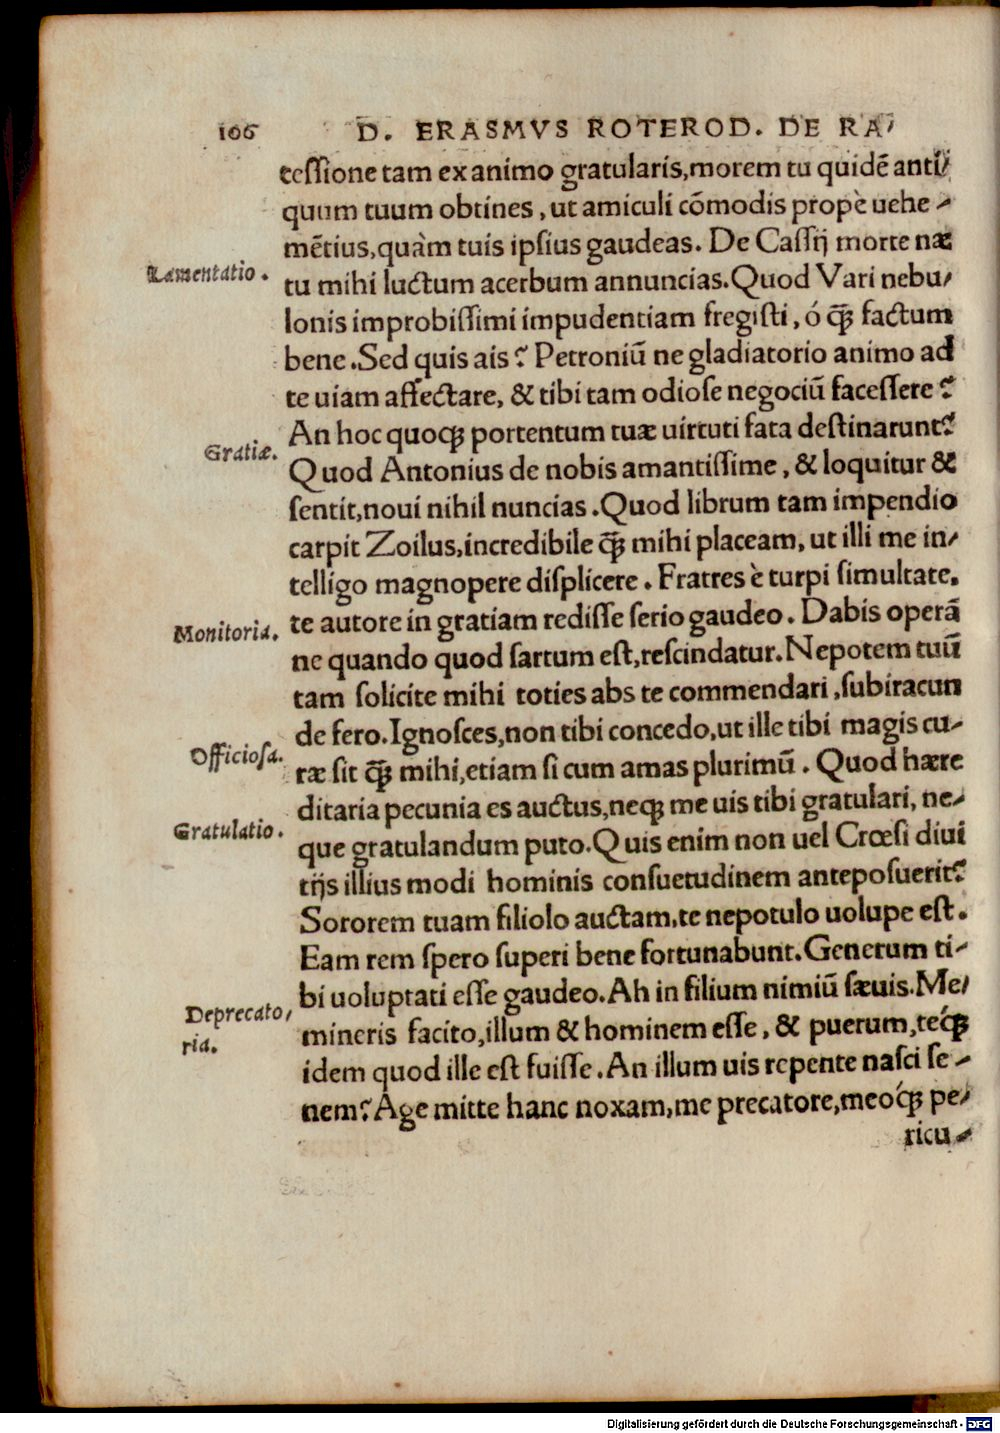 106 D. ERASMVS ROTEROD. DE RA⸗
tessione tam ex animo gratularis, morem tu quidē anti⸗
quum tuum obtines, ut amiculi cōmodis propè uehe⸗
mētius, quàm tuis ipsius gaudeas. De Cassij morte næ
Lamentatio.
tu mihi luctum acerbum annuncias. Quod Vari nebu⸗
lonis improbissimi impudentiam fregisti, ó q̄ꝫ factum
bene. Sed quis ais? Petroniū ne gladiatorio animo ad
te uiam affectare, & tibi tam odiose negociū facessere?
An hoc quoqꝫ portentum tuæ uirtuti fata destinarunt?
Gratiæ.
Quod Antonius de nobis amantissime, & loquitur &
sentit, noui nihil nuncias. Quod librum tam impendio
carpit Zoilus, incredibile q̄ꝫ mihi placeam, ut illi me in⸗
telligo magnopere displicere. Fratres è turpi simultate,
te autore in gratiam redisse serio gaudeo. Dabis operā
Monitoria.
ne quando quod sartum est, rescindatur. Nepotem tuū
tam solicite mihi toties abs te commendari, subiracun
de fero. Ignosces, non tibi concedo, ut ille tibi magis cu⸗
Officiosa.
ræ sit q̄ꝫ mihi, etiam si cum amas plurimū. Quod hære
ditaria pecunia es auctus, neqꝫ me uis tibi gratulari, ne⸗
Gratulatio.
que gratulandum puto. Quis enim non uel Crœsi diui
tijs illius modi hominis consuetudinem anteposuerit?
Sororem tuam filiolo auctam, te nepotulo uolupe est.
Eam rem spero superi bene fortunabunt. Generum ti⸗
bi uoluptati esse gaudeo. Ah in filium nimiū sæuis. Me⸗
Deprecato⸗
ria.
mineris facito, illum & hominem esse, & puerum, téqꝫ
idem quod ille est fuisse. An illum uis repente nasci se⸗
nem? Age mitte hanc noxam, me precatore, meóqꝫ pe⸗
ricu⸗
Digitalisierung gefördert durch die Deutsche Forschungsgemeinschaft - DFG